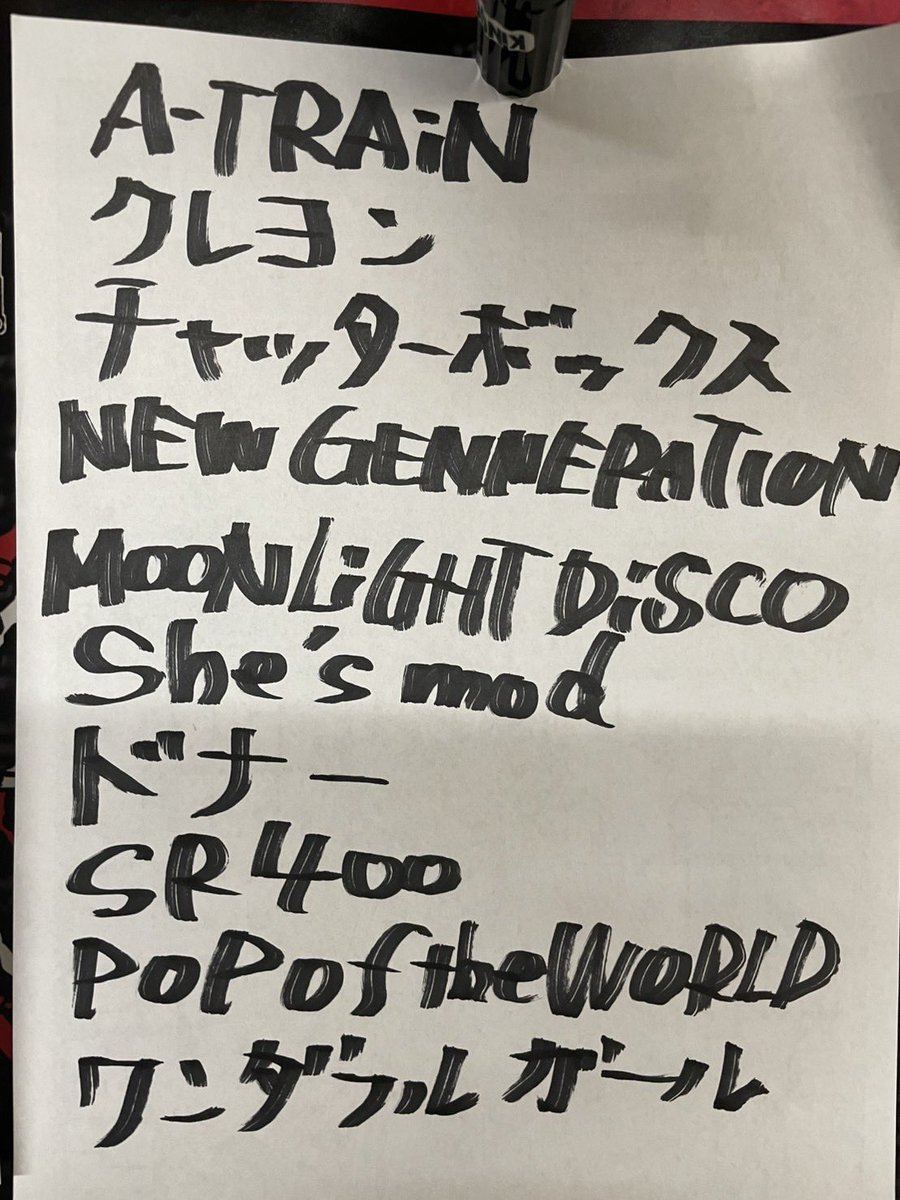 KIN
A-TRAiN
クレヨン
チャッターボックス
NEW GENNERATION
MOONLiGHT DiSCO
She's mod
ドナー
SR400
POP of the WORLD
ワンダフルガール